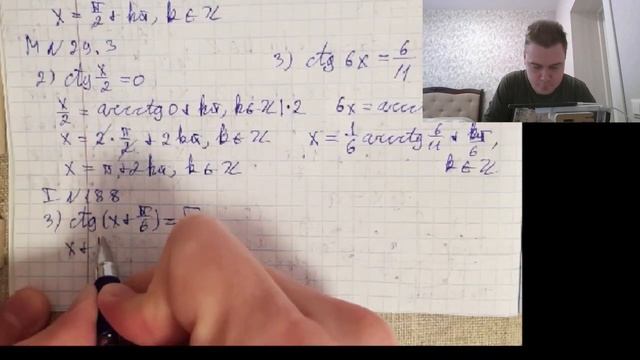 x = π/2 + kπ, k ∈ Z
M N 29.3
2) ctg x/2 = 0
x/2 = arcctg 0 + kπ, k ∈ Z | · 2
x = 2 · π/2 + 2kπ, k ∈ Z
x = π + 2kπ, k ∈ Z
3) ctg 6x = 6/11
6x = arcc
x = 1/6 arcctg 6/11 + kπ/6,
k ∈ Z
I N 188
3) ctg(x + π/6) =
x +